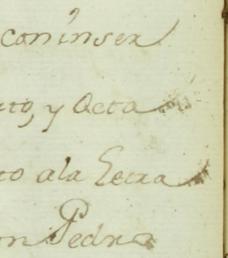 con inser
uto, y Acta
to ala Letra
on Pedro